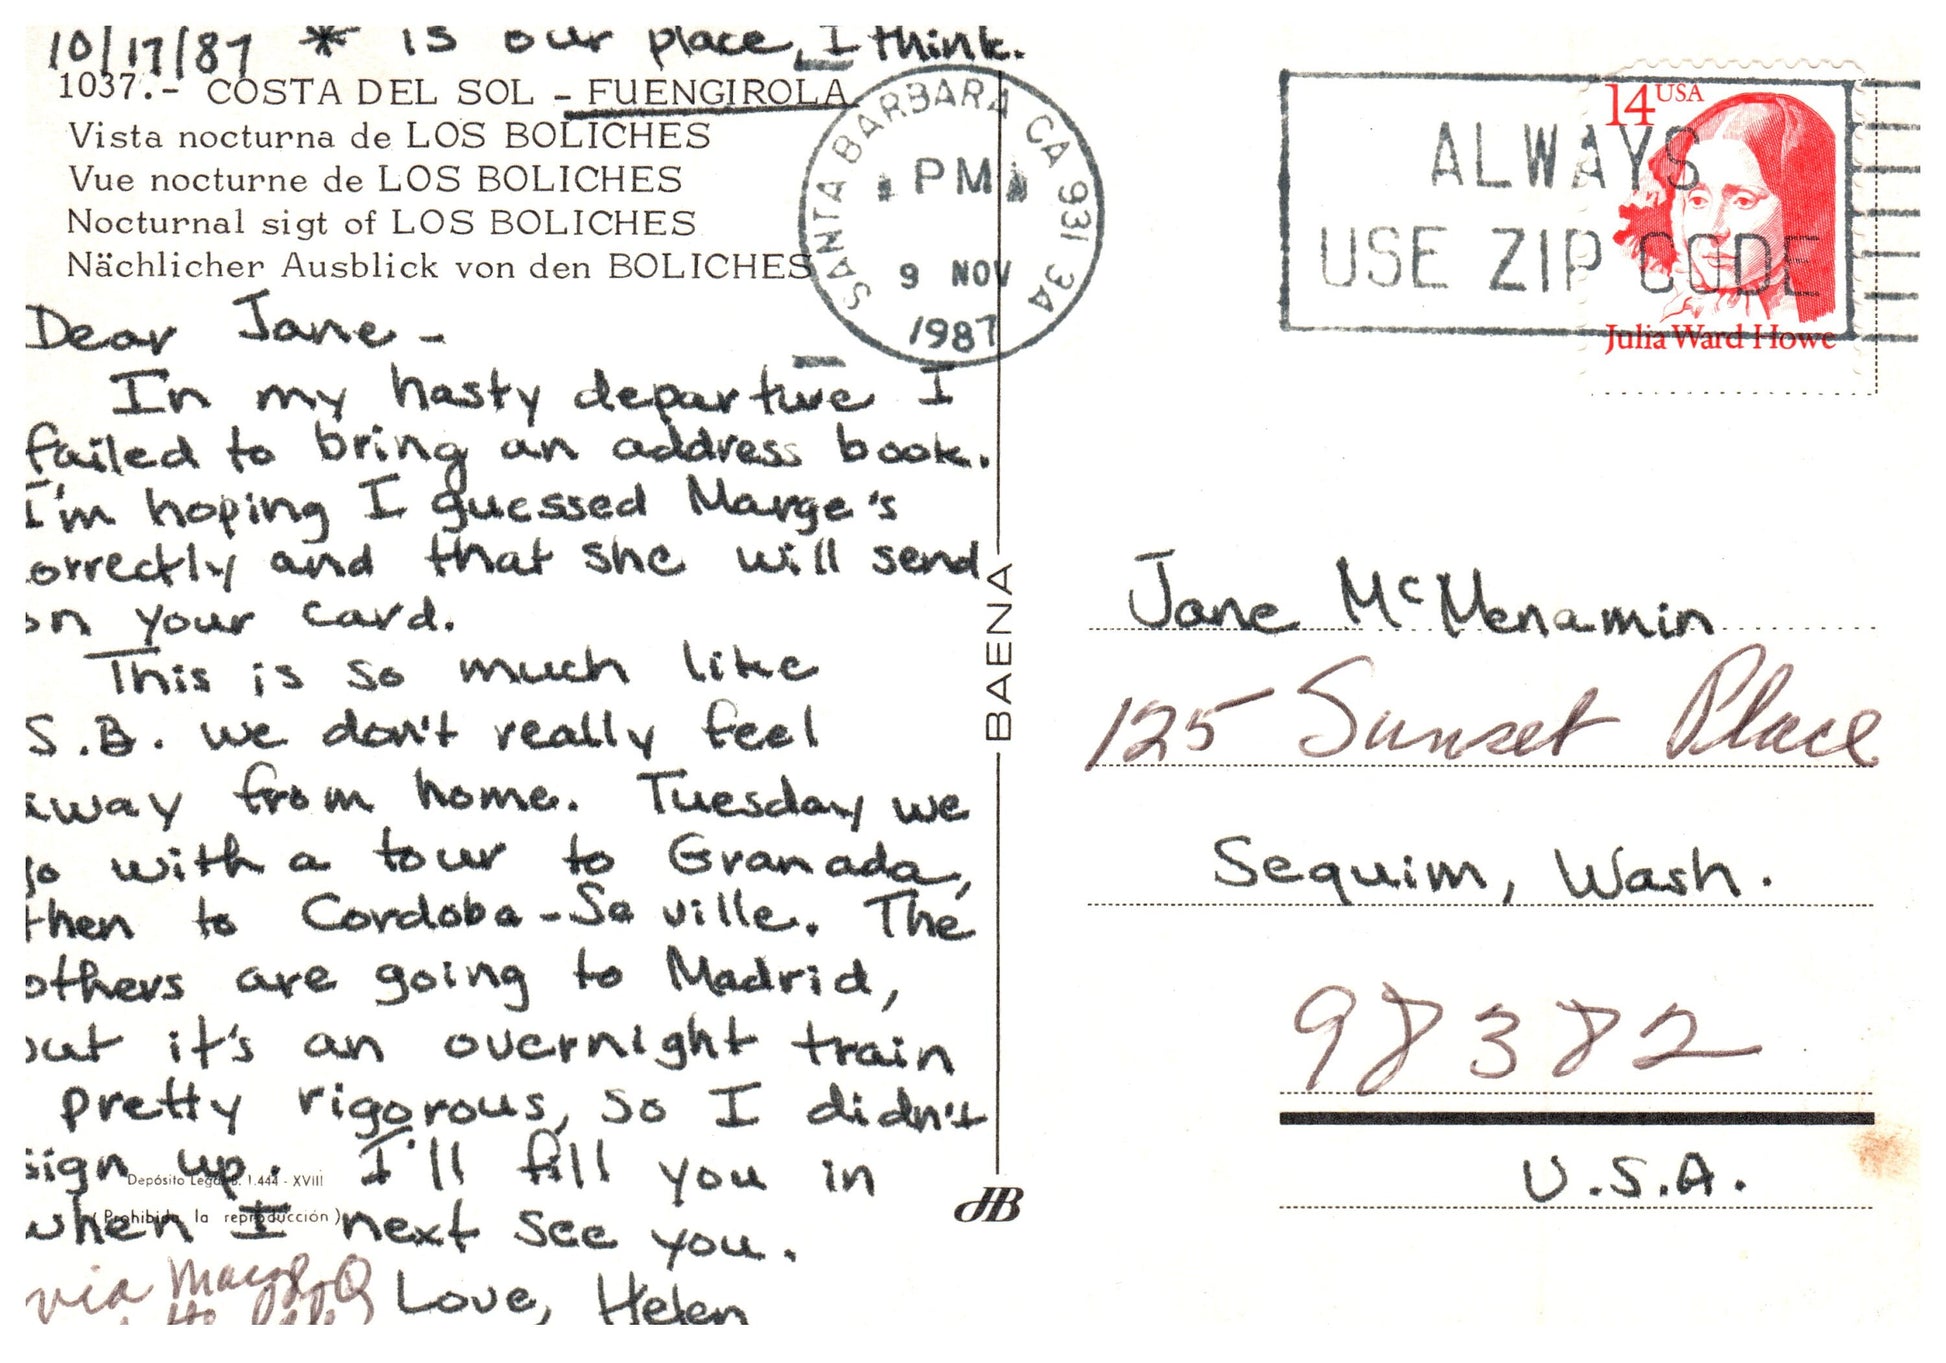 10/17/87 * is our place, I think.
1037.- COSTA DEL SOL - FUENGIROLA
Vista nocturna de LOS BOLICHES
Vue nocturne de LOS BOLICHES
Nocturnal sigt of LOS BOLICHES
Nächlicher Ausblick von den BOLICHES
Dear Jane -
In my hasty departure I
failed to bring an address book.
I'm hoping I guessed Marge's
orrectly and that she will send
on your card.
This is so much like
S.B. we don't really feel
away from home. Tuesday we
go with a tour to Granada,
then to Cordoba-Seville. The
others are going to Madrid,
but it's an overnight train
pretty rigorous, so I didn't
sign up. I'll fill you in
when I next see you.
Love, Helen
via
Depósito Legal B. 1.444 - XVIII
(Prohibida la reproducción)
BAENA
JB
SANTA BARBARA CA 931 3A
PM
9 NOV
1987
ALWAYS
USE ZIP CODE
14 USA
Julia Ward Howe
Jane McMenamin
125 Sunset Place
Sequim, Wash.
98382
U.S.A.